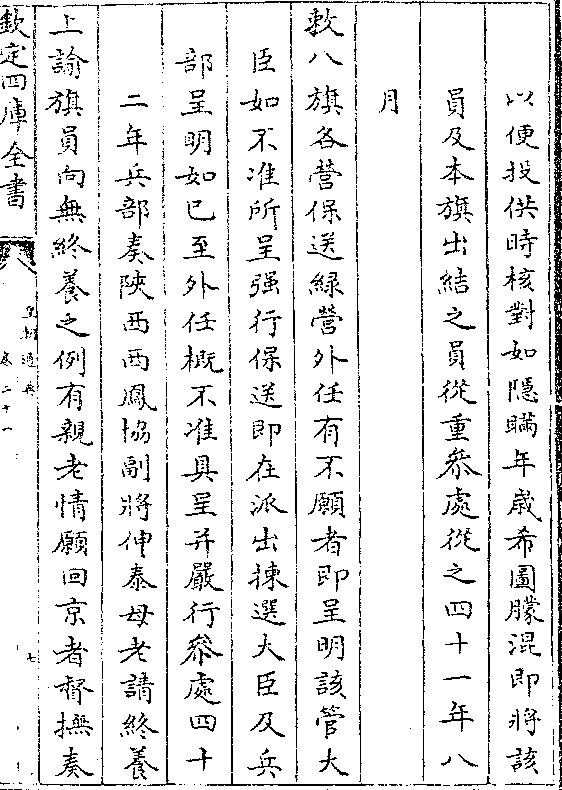 以便投供時核對如隱瞞年歲希圖朦混即將該
員及本旗出結之員從重叅處從之四十一年八
月
敕八旗各營保送綠營外任有不願者即呈明該管大
臣如不准所呈强行保送即在派出揀選大臣及兵
部呈明如已至外任概不准具呈并嚴行叅處四十
二年兵部奏陝西西鳳協副將伸泰母老請終養
上諭旗員向無終養之例有親老情願回京者督撫奏
欽定四庫全書
皇朝通典
卷二十一
七